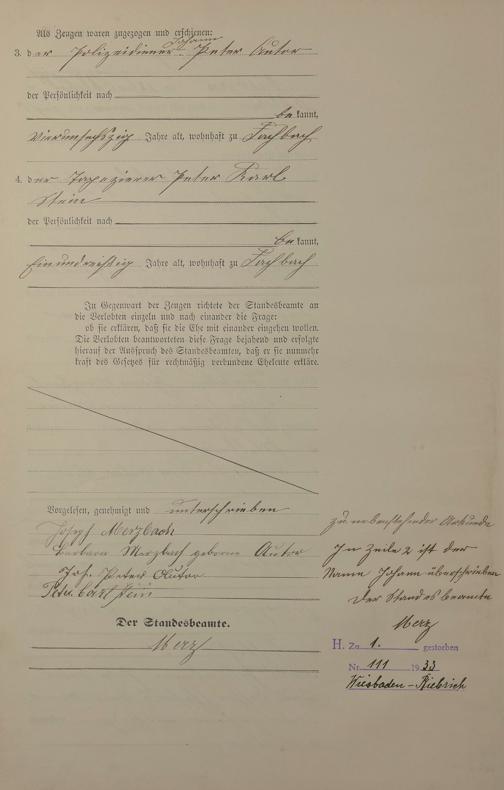 Als Zeugen waren zugezogen und erschienen:
Johann
3. der Polizeidiener Peter Autor
der Persönlichkeit nach
be kannt,
vierundsechszig Jahre alt, wohnhaft zu Fachbach
4. der Tapezierer Peter Karl
Stein
der Persönlichkeit nach
be kannt,
Einunddreißig Jahre alt, wohnhaft zu Fachbach
In Gegenwart der Zeugen richtete der Standesbeamte an
die Verlobten einzeln und nach einander die Frage:
ob sie erklären, daß sie die Ehe mit einander eingehen wollen.
Die Verlobten beantworteten diese Frage bejahend und erfolgte
hierauf der Ausspruch des Standesbeamten, daß er sie nunmehr
kraft des Gesetzes für rechtmäßig verbundene Eheleute erkläre.
Vorgelesen, genehmigt und unterschrieben
Josef Merzbach
Barbara Merzbach geborne Autor
Joh. Peter Autor
Peter Carl Stein
Der Standesbeamte.
Merz
zu nebenstehender Urkunde
In Zeile 2 ist der
Name Johann überschrieben
Der Standesbeamte
Merz
H. Zu 1. gestorben
Nr. 111 1933
Wiesbaden-Biebrich